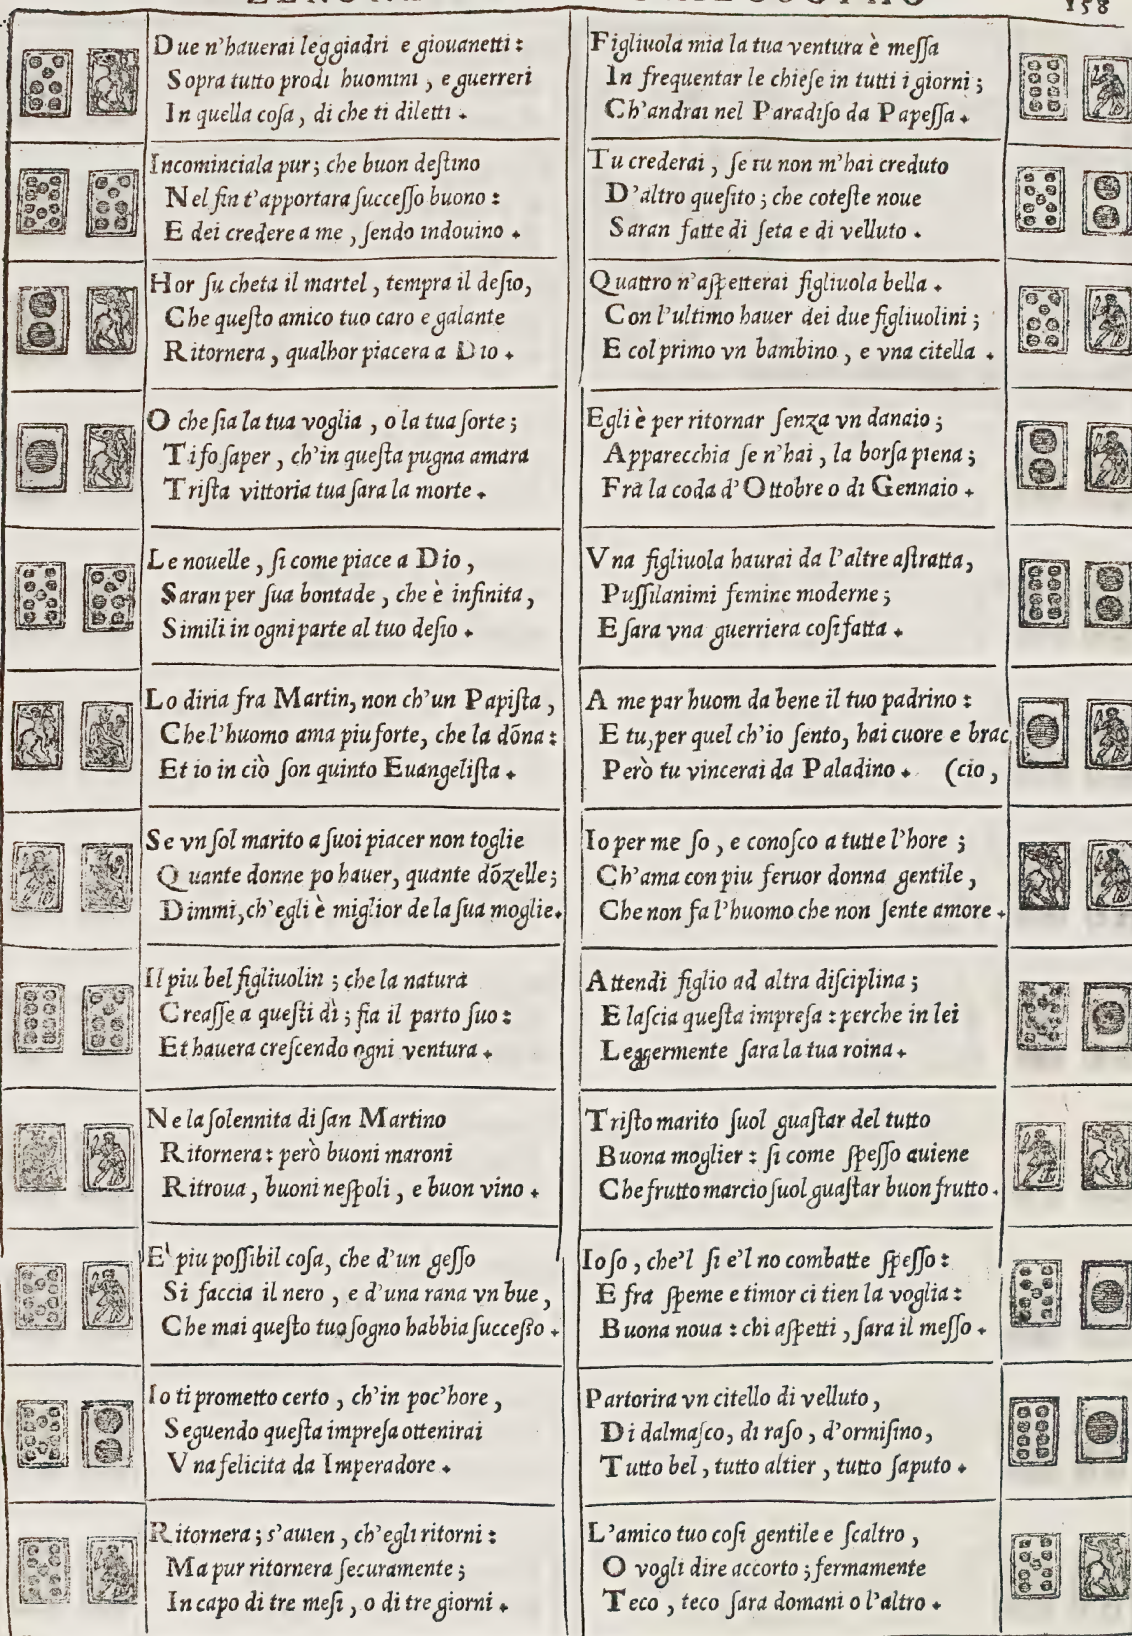 158
Due n'hauerai leggiadri e giouanetti:
Sopra tutto prodi huomini, e guerreri
In quella coſa, di che ti diletti.
Incominciala pur; che buon deſtino
Nel fin t'apportara ſucceſſo buono:
E dei credere a me, ſendo indouino.
Hor ſu cheta il martel, tempra il deſio,
Che queſto amico tuo caro e galante
Ritornera, qualhor piacera a Dio.
O che ſia la tua voglia, o la tua ſorte;
Ti fo ſaper, ch'in queſta pugna amara
Triſta vittoria tua ſara la morte.
Le nouelle, ſi come piace a Dio,
Saran per ſua bontade, che è infinita,
Simili in ogni parte al tuo deſio.
Lo diria fra Martin, non ch'un Papiſta,
Che l'huomo ama piu forte, che la dōna:
Et io in ciò ſon quinto Euangeliſta.
Se vn ſol marito a ſuoi piacer non toglie
Quante donne po hauer, quante dōzelle;
Dimmi, ch'egli è miglior de la ſua moglie.
Il piu bel figliuolin; che la natura
Creaſſe a queſti dì; fia il parto ſuo:
Et hauera creſcendo ogni ventura.
Ne la ſolennita di ſan Martino
Ritornera: però buoni maroni
Ritroua, buoni neſpoli, e buon vino.
E' piu poſſibil coſa, che d'un geſſo
Si faccia il nero, e d'una rana vn bue,
Che mai queſto tuo ſogno habbia ſucceſſo.
Io ti prometto certo, ch'in poc'hore,
Seguendo queſta impreſa ottenirai
Vna felicita da Imperadore.
Ritornera; s'auien, ch'egli ritorni:
Ma pur ritornera ſecuramente;
In capo di tre meſi, o di tre giorni.
Figliuola mia la tua ventura è meſſa
In frequentar le chieſe in tutti i giorni;
Ch'andrai nel Paradiſo da Papeſſa.
Tu crederai, ſe tu non m'hai creduto
D'altro queſito; che coteſte noue
Saran fatte di ſeta e di velluto.
Quattro n'aſpetterai figliuola bella.
Con l'ultimo hauer dei due figliuolini;
E col primo vn bambino, e vna citella.
Egli è per ritornar ſenza vn danaio;
Apparecchia ſe n'hai, la borſa piena;
Frà la coda d'Ottobre o di Gennaio.
Vna figliuola haurai da l'altre aſtratta,
Puſſilanimi femine moderne;
E ſara vna guerriera coſi fatta.
A me par huom da bene il tuo padrino:
E tu, per quel ch'io ſento, hai cuore e brac
Però tu vincerai da Paladino. (cio,
Io per me ſo, e conoſco a tutte l'hore;
Ch'ama con piu feruor donna gentile,
Che non fa l'huomo che non ſente amore.
Attendi figlio ad altra diſciplina;
E laſcia queſta impreſa: perche in lei
Leggermente ſara la tua roina.
Triſto marito ſuol guaſtar del tutto
Buona moglier: ſi come ſpeſſo auiene
Che frutto marcio ſuol guaſtar buon frutto.
Io ſo, che'l ſi e'l no combatte ſpeſſo:
E fra ſpeme e timor ci tien la voglia:
Buona noua: chi aſpetti, ſara il meſſo.
Partorira vn citello di velluto,
Di dalmaſco, di raſo, d'ormiſino,
Tutto bel, tutto altier, tutto ſaputo.
L'amico tuo coſi gentile e ſcaltro,
O vogli dire accorto; fermamente
Teco, teco ſara domani o l'altro.